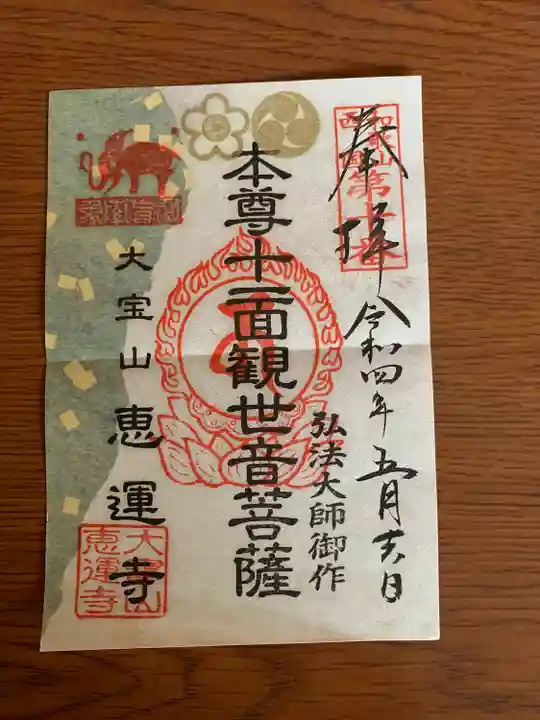 奉拝
令和四年五月
日
弘法大師御作
本尊十一面観世音菩薩
大宝山恵運寺
大宝山
恵運寺